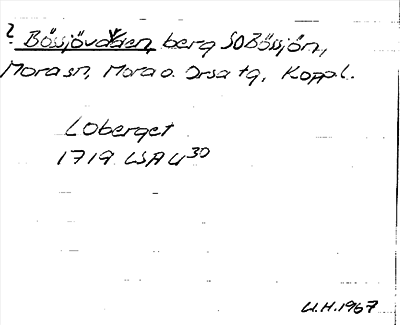 ? Bössjövålen, berg SO Bössjön,
Mora sn, Mora o. Orsa tg, Koppl.
Loberget
1719 LSA U30
U.H. 1967